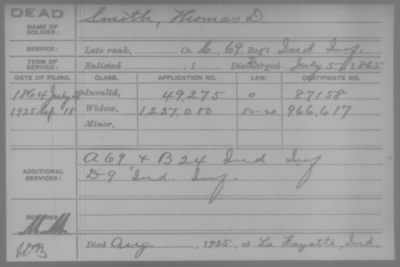 DEAD
NAME OF SOLDIER: Smith, Thomas D.
SERVICE: Late rank, Co. C, 69 Reg't Ind Inf.
TERM OF SERVICE: Enlisted , 1 Discharged July 5, 1865
DATE OF FILING. CLASS. APPLICATION NO. LAW. CERTIFICATE NO.
1864 July Invalid, 49,275 87158
1925 Sep 18 Widow, 1,237,080 966,617
Minor,
ADDITIONAL SERVICES: A 69 & B 24 Ind Inf
D-9 Ind. Inf.
REMARKS:
WB Died Aug , 1925, at La Fayette, Ind.